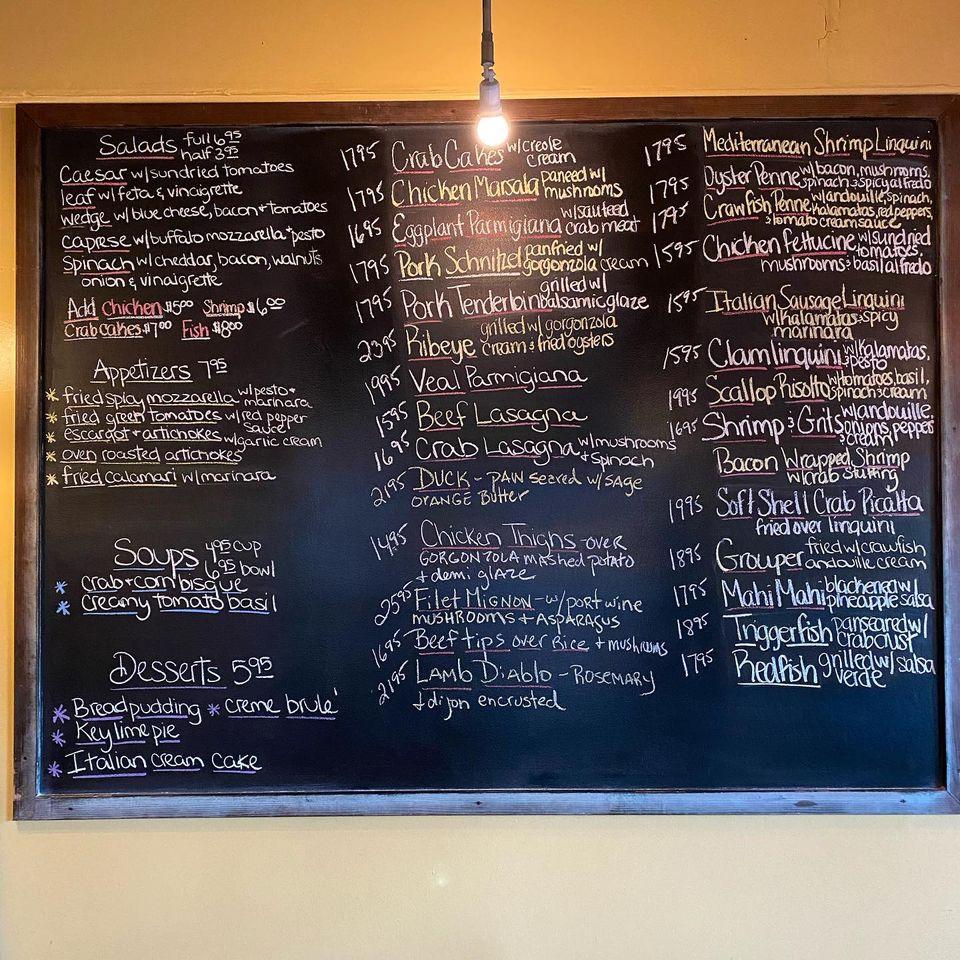 Salads full 6.95
half 3.95
Caesar w/sundried tomatoes
leaf w/feta & vinaigrette
wedge w/blue cheese, bacon + tomatoes
caprese w/buffalo mozzarella + pesto
Spinach w/cheddar, bacon, walnuts
onion & vinaigrette
Add Chicken $5.00 Shrimp $6.00
Crab cakes $7.00 Fish $8.00
Appetizers 7.95
* fried spicy mozzarella w/pesto +
marinara
* fried green tomatoes w/red pepper
sauce
* escargot + artichokes w/garlic cream
* oven roasted artichokes
* fried calamari w/marinara
Soups 4.95 cup
6.95 bowl
* crab + corn bisque
* creamy tomato basil
Desserts 5.95
* Bread pudding * creme brule'
* Key lime pie
* Italian cream cake
17.95 Crab Cakes w/creole
cream
17.95 Chicken Marsala paneed w/
mushrooms
16.95 Eggplant Parmigiana w/sauteed
crab meat
17.95 Pork Schnitzel panfried w/
gorgonzola cream
17.95 Pork Tenderloin grilled w/
balsamic glaze
23.95 Ribeye grilled w/ gorgonzola
cream & fried oysters
19.95 Veal Parmigiana
15.95 Beef Lasagna
16.95 Crab Lasagna w/mushrooms
+ spinach
21.95 DUCK - PAN seared w/ SAGE
ORANGE BUTTER
14.95 Chicken Thighs - over
GORGONZOLA MASHED POTATO
+ demi glaze
25.95 Filet Mignon - w/ port wine
MUSHROOMS + ASPARAGUS
16.95 Beef tips over Rice + mushrooms
21.95 LAMB DiAblo - ROSEMARY
+ dijon encrusted
17.95 Mediterranean Shrimp Linguini
17.95 Oyster Penne w/bacon, mushrooms,
spinach & spicy alfredo
17.95 Crawfish Penne w/andouille, spinach,
kalamatas, red peppers,
& tomato cream sauce
15.95 Chicken Fettucine w/sundried
tomatoes,
mushrooms & basil alfredo
15.95 Italian Sausage Linguini
w/kalamatas & spicy
marinara
15.95 Clam linguini w/kalamatas,
pesto
19.95 Scallop Risotto w/tomatoes, basil,
spinach & cream
16.95 Shrimp & Grits w/andouille
onions, peppers
& cream
Bacon Wrapped Shrimp
w/crab stuffing
19.95 Soft Shell Crab Picatta
fried over linguini
18.95 Grouper fried w/crawfish
andouille cream
17.95 Mahi Mahi blackened w/
pineapple salsa
18.95 Triggerfish panseared w/
crab crust
17.95 Redfish grilled w/ salsa
verde